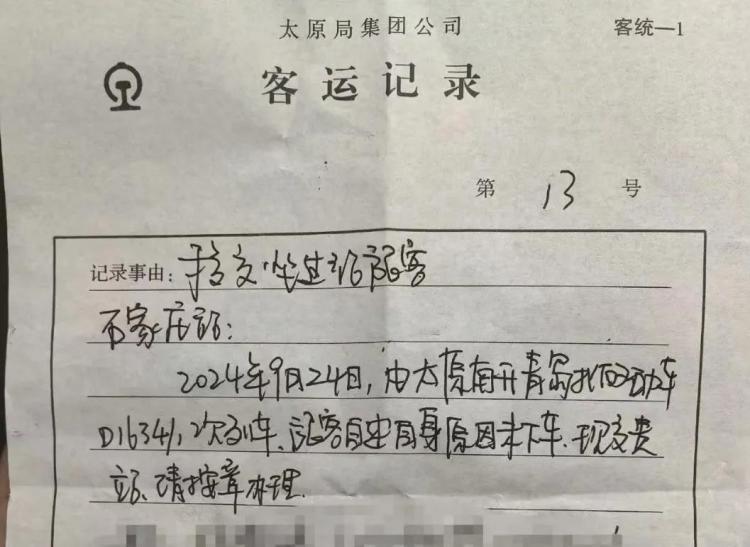 太原局集团公司 客统—1
客运记录
第 13 号
记录事由:移交坐过站旅客
石家庄站:
2024年9月24日,由太原南开青岛北动车
D1634/1次列车、旅客自述自身原因未下车、现交贵
站、请按章办理.